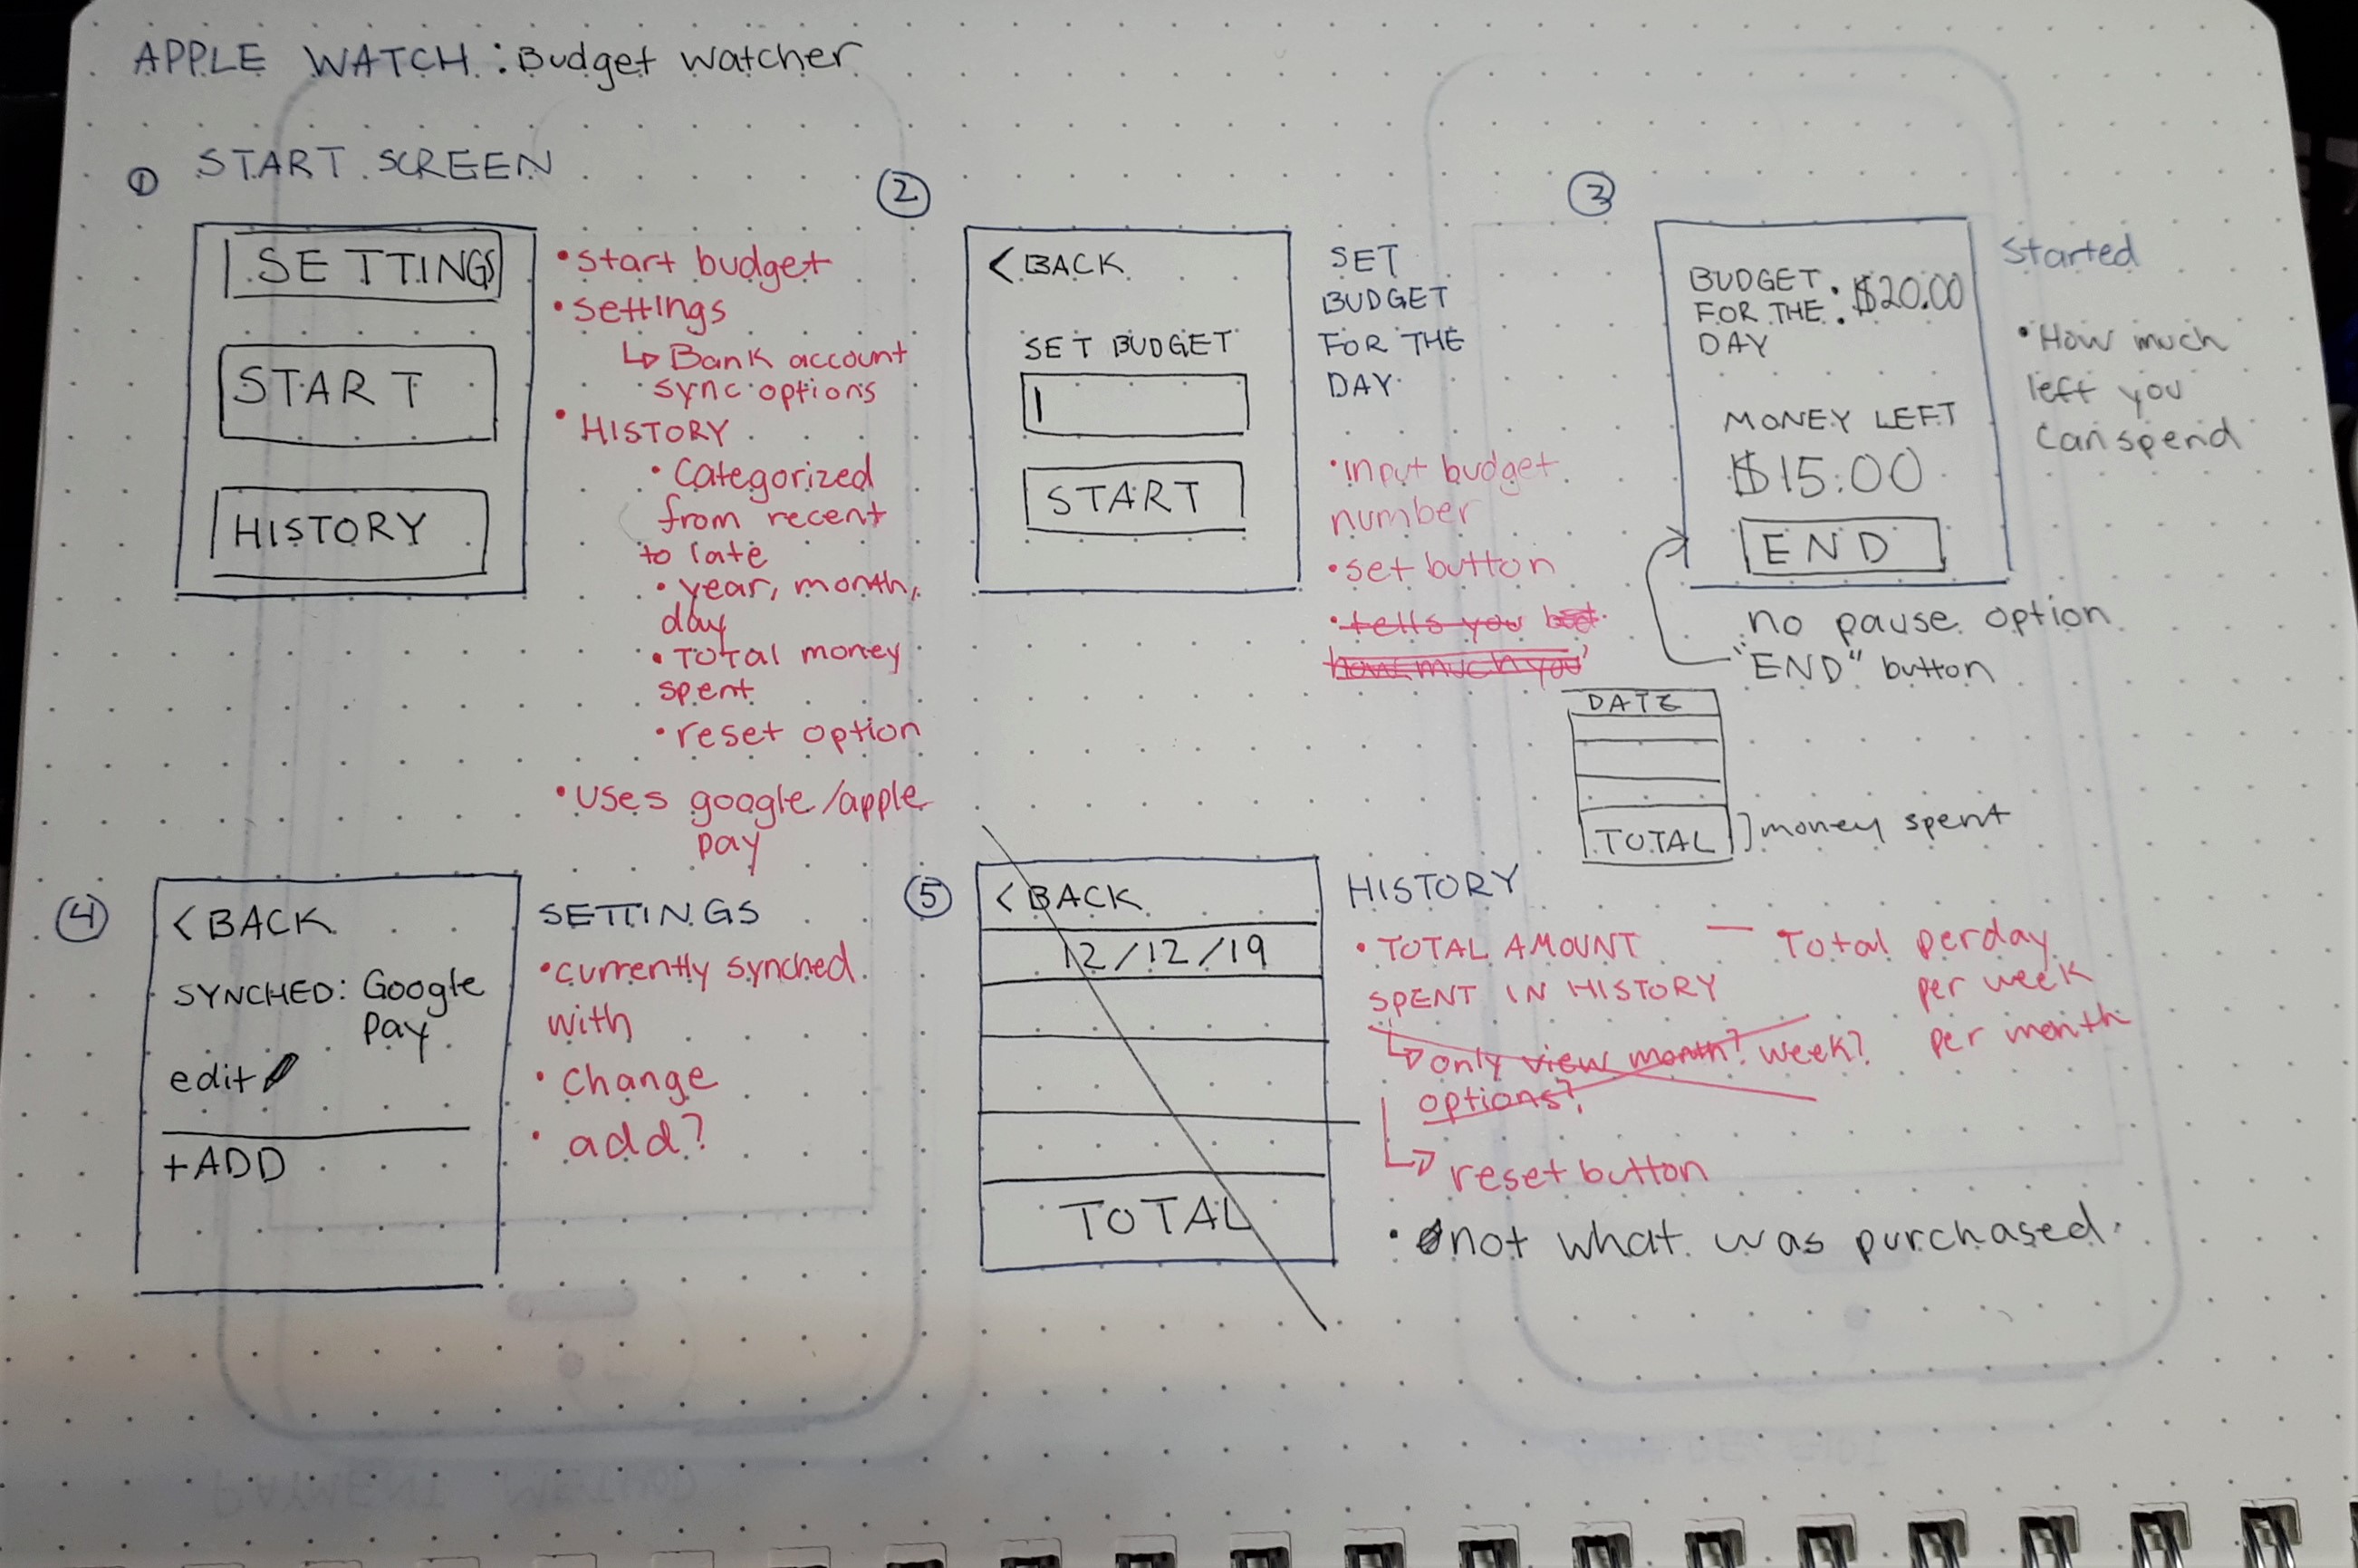 APPLE WATCH: Budget Watcher
① START SCREEN
SETTINGS
START
HISTORY
• start budget
• settings
↳ Bank account
sync options
• HISTORY
• Categorized
from recent
to late
• year, month,
day
• TOTAL money
spent
• reset option
• uses google/apple
pay
②
< BACK
SET BUDGET
START
SET
BUDGET
FOR THE
DAY
• input budget
number
• set button
• tells you
how much you
③
BUDGET
FOR THE : $20.00
DAY
MONEY LEFT
$15.00
END
Started
• How much
left you
can spend
no pause option
"END" button
DATE
TOTAL ] money spent
④
< BACK
SYNCHED: Google
Pay
edit
+ADD
SETTINGS
• currently synched
with
• change
• add?
⑤
< BACK
12/12/19
TOTAL
HISTORY
• TOTAL AMOUNT — Total per day
SPENT IN HISTORY per week
↳ only view month? week? per month
options?
↳ reset button
• not what was purchased.